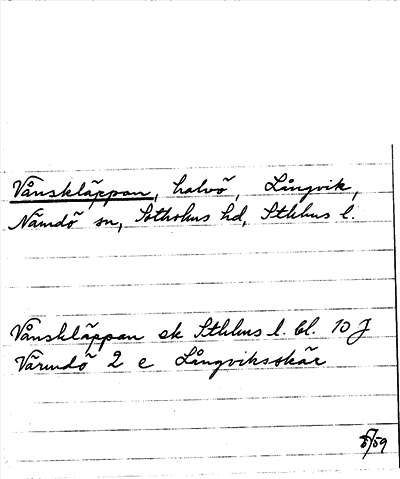 Vånskläppan, halvö, Långvik,
Nämdö sn, Sotholms hd, Sthlms l.
Vånskläppan ek Sthlms l. bl. 10 J
Värmdö 2 e Långviksskär
/59